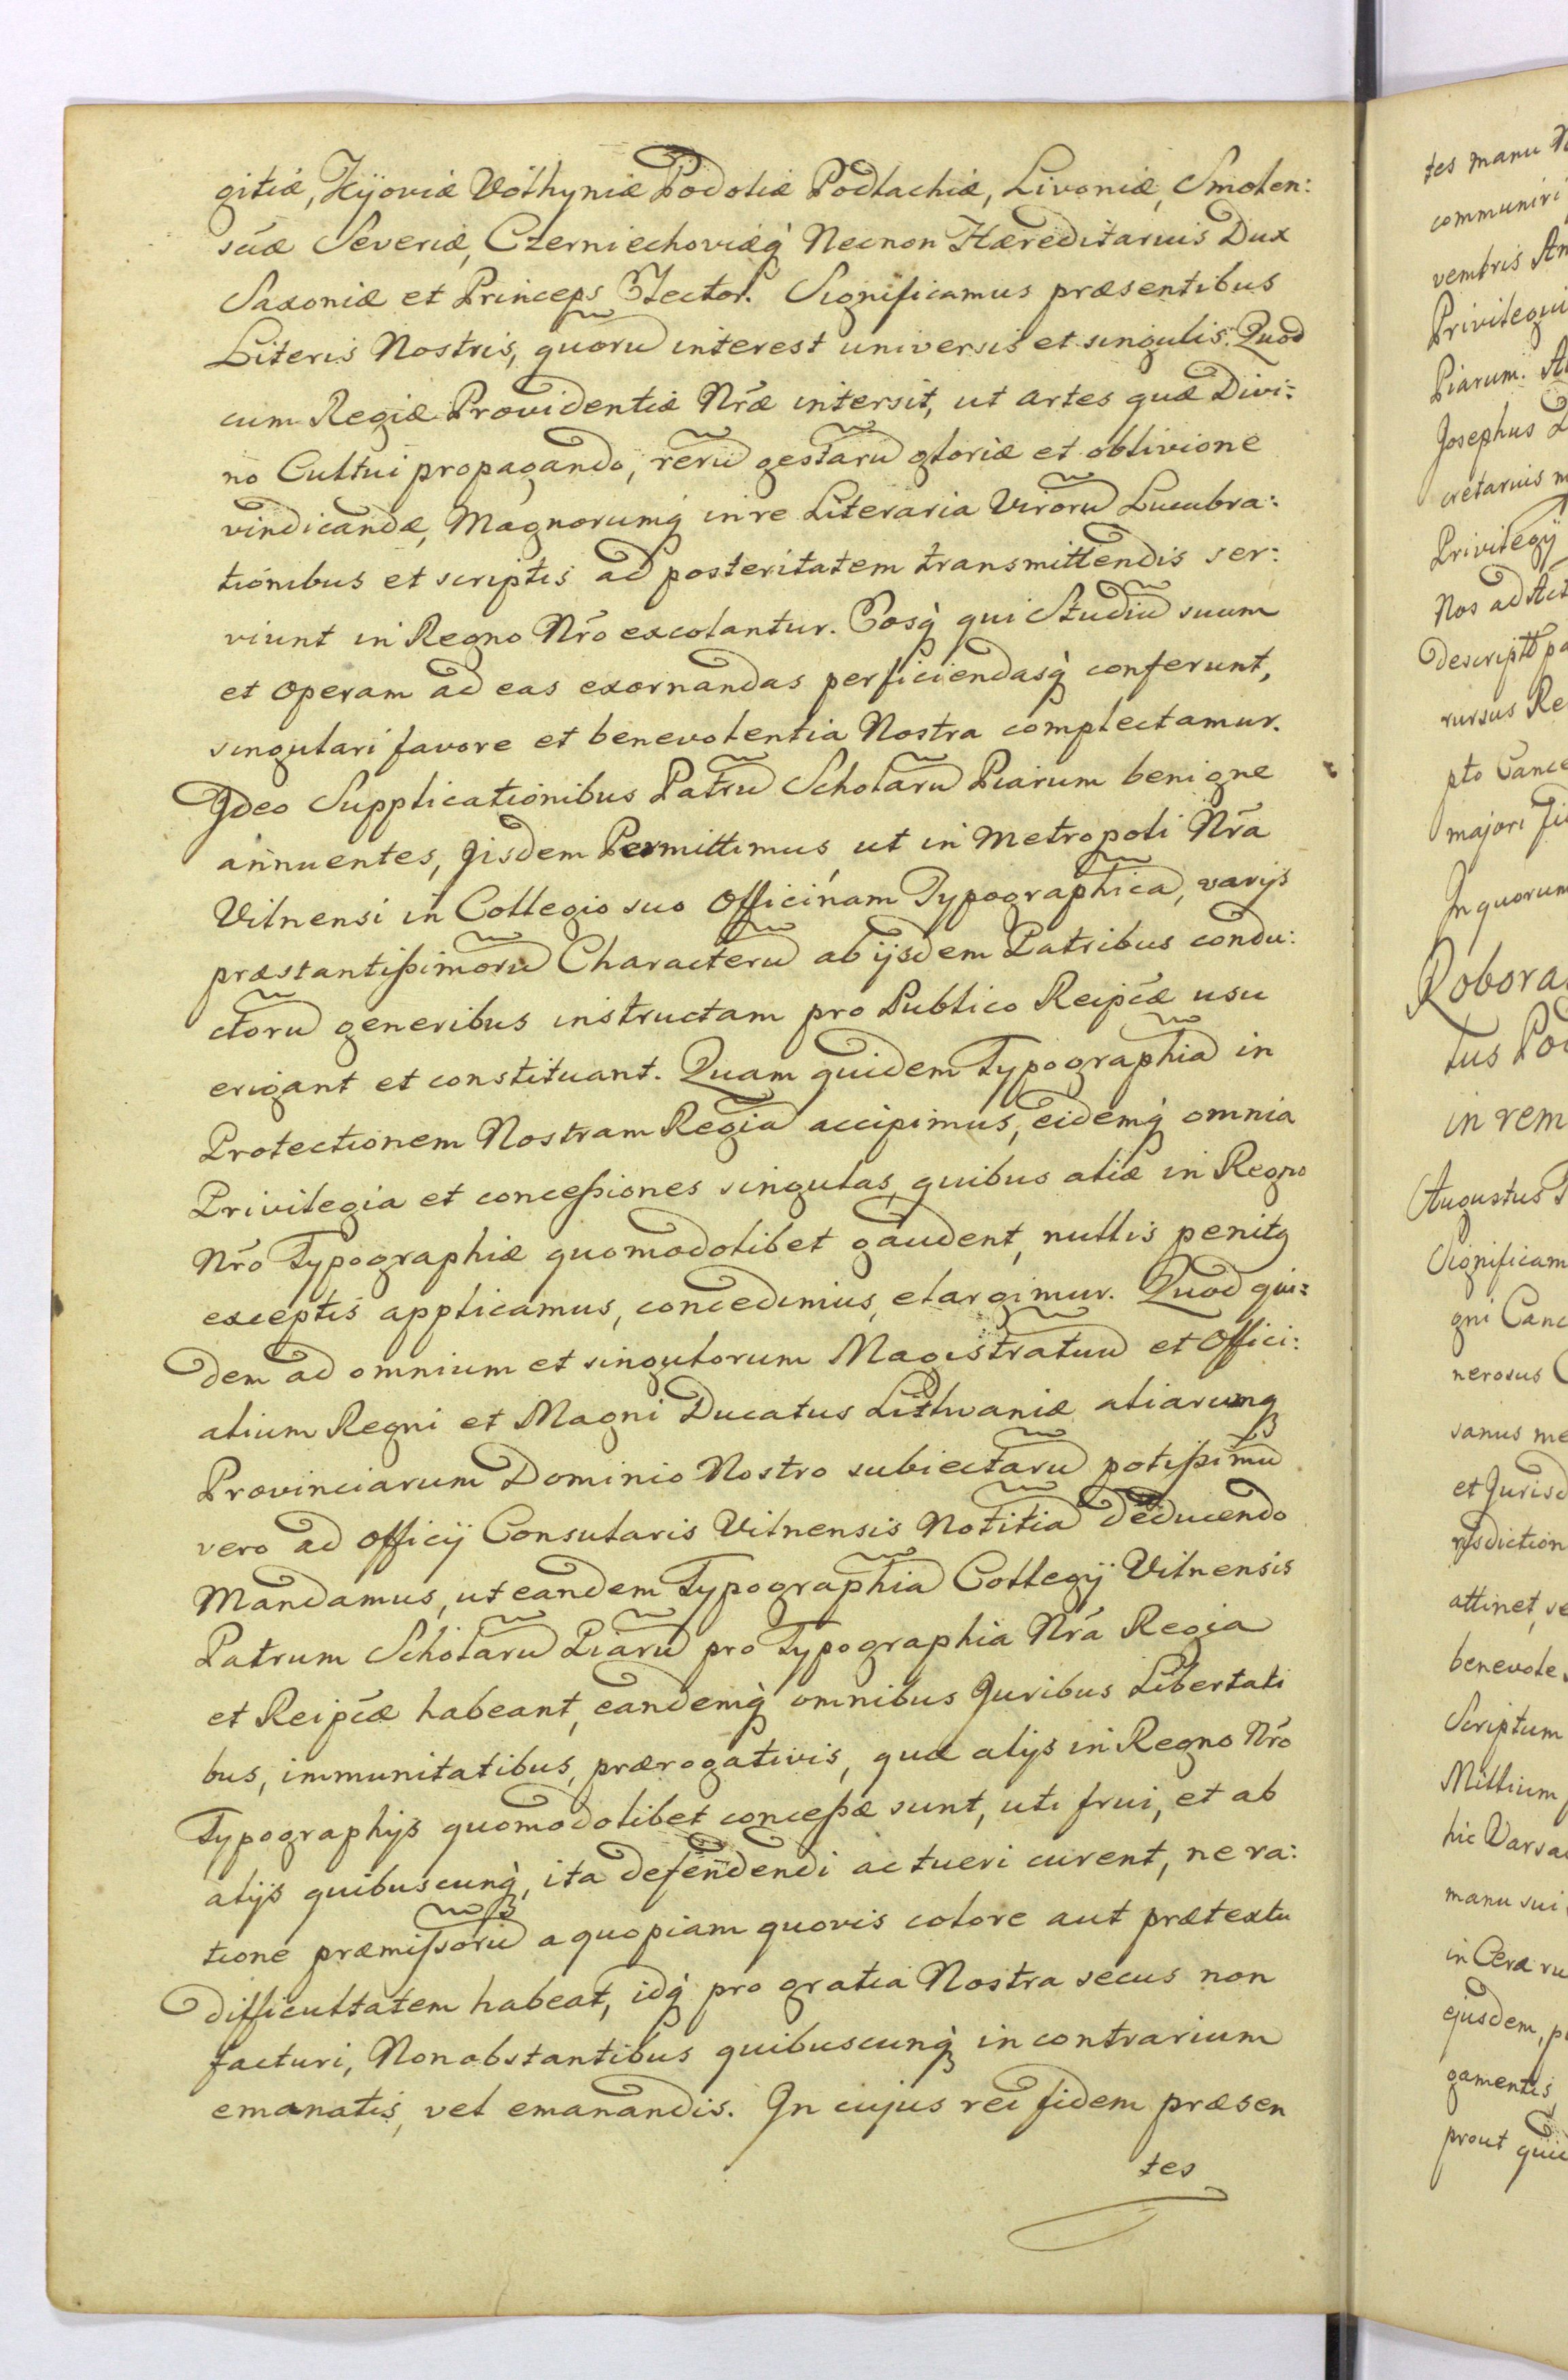 gitiæ, Kÿoviæ Volhyniæ Podoliæ Podlachiæ, Livoniæ, Smolen:
scæ Severiæ, Czerniechoviæq̀ Necnon Hæreditarius Dux
Saxoniæ et Princeps Elector. Significamus præsentibus
Literis Nostris, quorũ interest universis et singulis. Quod
cum Regiæ Providentiæ Nr̃æ intersit, ut artes quæ Divi:
no Cultui propagando, rerũ gestarũ gloriæ et oblivione
vindicandæ, Magnorumq̀ in re Literaria Virorũ Lucubra:
tionibus et scriptis ad posteritatem transmittendis ser:
viunt in Regno Nr̃o excolantur. Eosq̀ qui Studiũ suum
et operam ad eas exornandas perficiendasq̀ conferunt,
singulari favore et benevolentia Nostra complectamur.
Ideo Supplicationibus Patrũ Scholarũ Piarum benigne
annuentes, Iisdem Permittimus, ut in Metropoli Nr̃a
Vilnensi in Collegio suo Officinam Typographicã, varijs
præstantißimorũ Characterũ ab ijsdem Patribus condu:
ctorũ generibus instructam pro Publico Reipc̃æ usu
erigant et constituant. Quam quidem Typographiã in
Protectionem Nostram Regiã accipimus, eidemq̀ omnia
Privilegia et conceßiones singulas, quibus aliæ in Regno
Nr̃o Typographiæ quomodolibet gaudent, nullis penitq
exceptis applicamus, concedimus, elargimur. Quod qui:
dem ad omnium et singulorum Magistratuũ et Offici:
alium Regni et Magni Ducatus Lithvaniæ aliarumq
Provinciarum Dominio Nostro subiectarũ potißimũ
vero ad Officij Consularis Vilnensis Notitiã deducendo
Mandamus, ut eandem Typographiã Collegÿ Vilnensis
Patrum Scholarũ Piarũ pro Typographia Nr̃a Regia
et Reipc̃æ habeant, eandemq̀ omnibus Juribus Libertati
bus, immunitatibus, prærogativis, quæ alijs in Regno Nr̃o
Typographijs quomodolibet conceßæ sunt, uti frui, et ab
alijs quibuscunq̀, ita defendendi ac tueri curent, ne ra:
tione præmißorũ a quopiam quovis colore aut prætextu
difficultatem habeat, idq̀ pro gratia Nostra secus non
facturi, Non obstantibus quibuscunq̀ in contrarium
emanatis, vel emanandis. In cujus rei fidem præsen
tes
tes manu
communiri
vembris
Piarum.
Josephus
cretarius
Privilegÿ
Nos ad
rursus
pto
majori
In quorum
in rem
Augustus
gni
nerosus
et
attinet,
Scriptum
Millium
hic
manu sui
in Cera
ejusdem,
gamentis,
prout